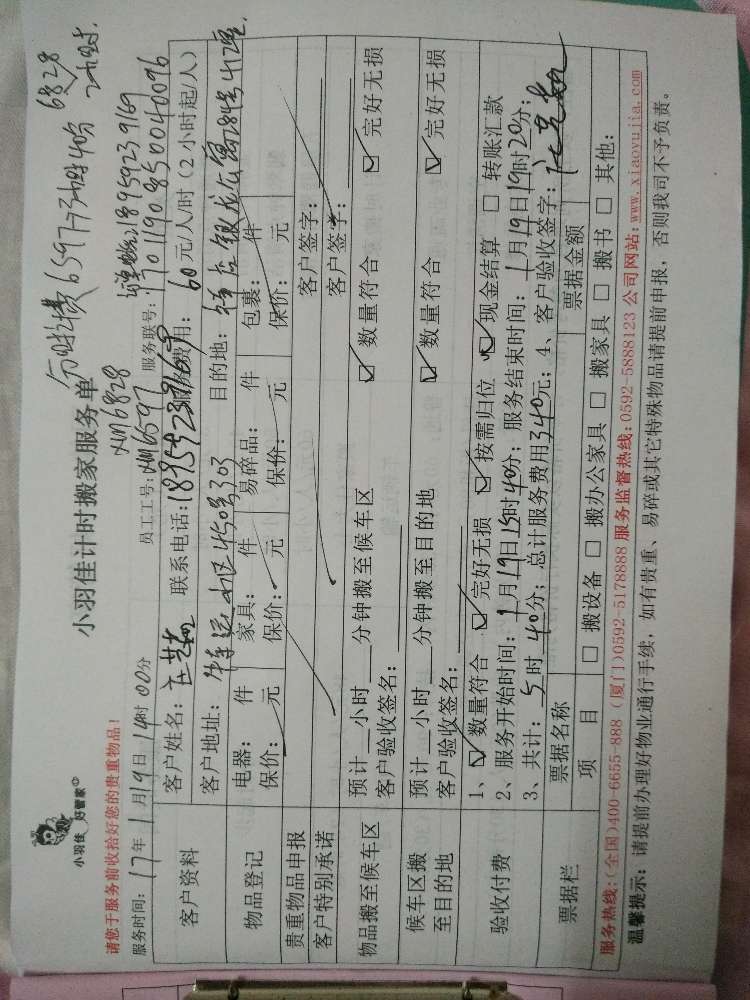 小羽佳 好管家
小羽佳计时搬家服务单
请您于服务前收拾好您的贵重物品！
XM6828
服务时间：17年1月19日14时00分 员工工号：XM6597 服务联号：
客户资料
客户姓名： 联系电话：18959239169 服务费用：60元/人/时（2小时起/人）
客户地址： 450号303 目的地：
物品登记
电器： 件 家具： 件 易碎品： 件 包裹： 件
保价： 元 保价： 元 保价： 元 保价： 元
贵重物品申报 客户签字：
客户特别承诺 客户签字：
物品搬至候车区
预计__小时__分钟搬至候车区 ☑ 数量符合 ☑ 完好无损
客户验收签名：
候车区搬至目的地
预计__小时__分钟搬至目的地 ☑ 数量符合 ☑ 完好无损
客户验收签名：
验收付费
1、☑ 数量符合 ☑ 完好无损 ☑ 按需归位 ☑ 现金结算 □ 转账汇款
2、服务开始时间：1月19日15时40分；服务结束时间：1月19日19时20分；
3、共计：5时40分；总计服务费用340元；4、客户验收签字：
票据栏
票据名称 票据金额
项 目 □ 搬设备 □ 搬办公家具 □ 搬家具 □ 搬书 □ 其他：
服务热线：（全国）400-6655-888（厦门）0592-5178888 服务监督热线：0592-5888123 公司网站：www.xiaoyujia.com
温馨提示：请提前办理好物业通行手续，如有贵重、易碎或其它特殊物品请提前申报，否则我司不予负责。